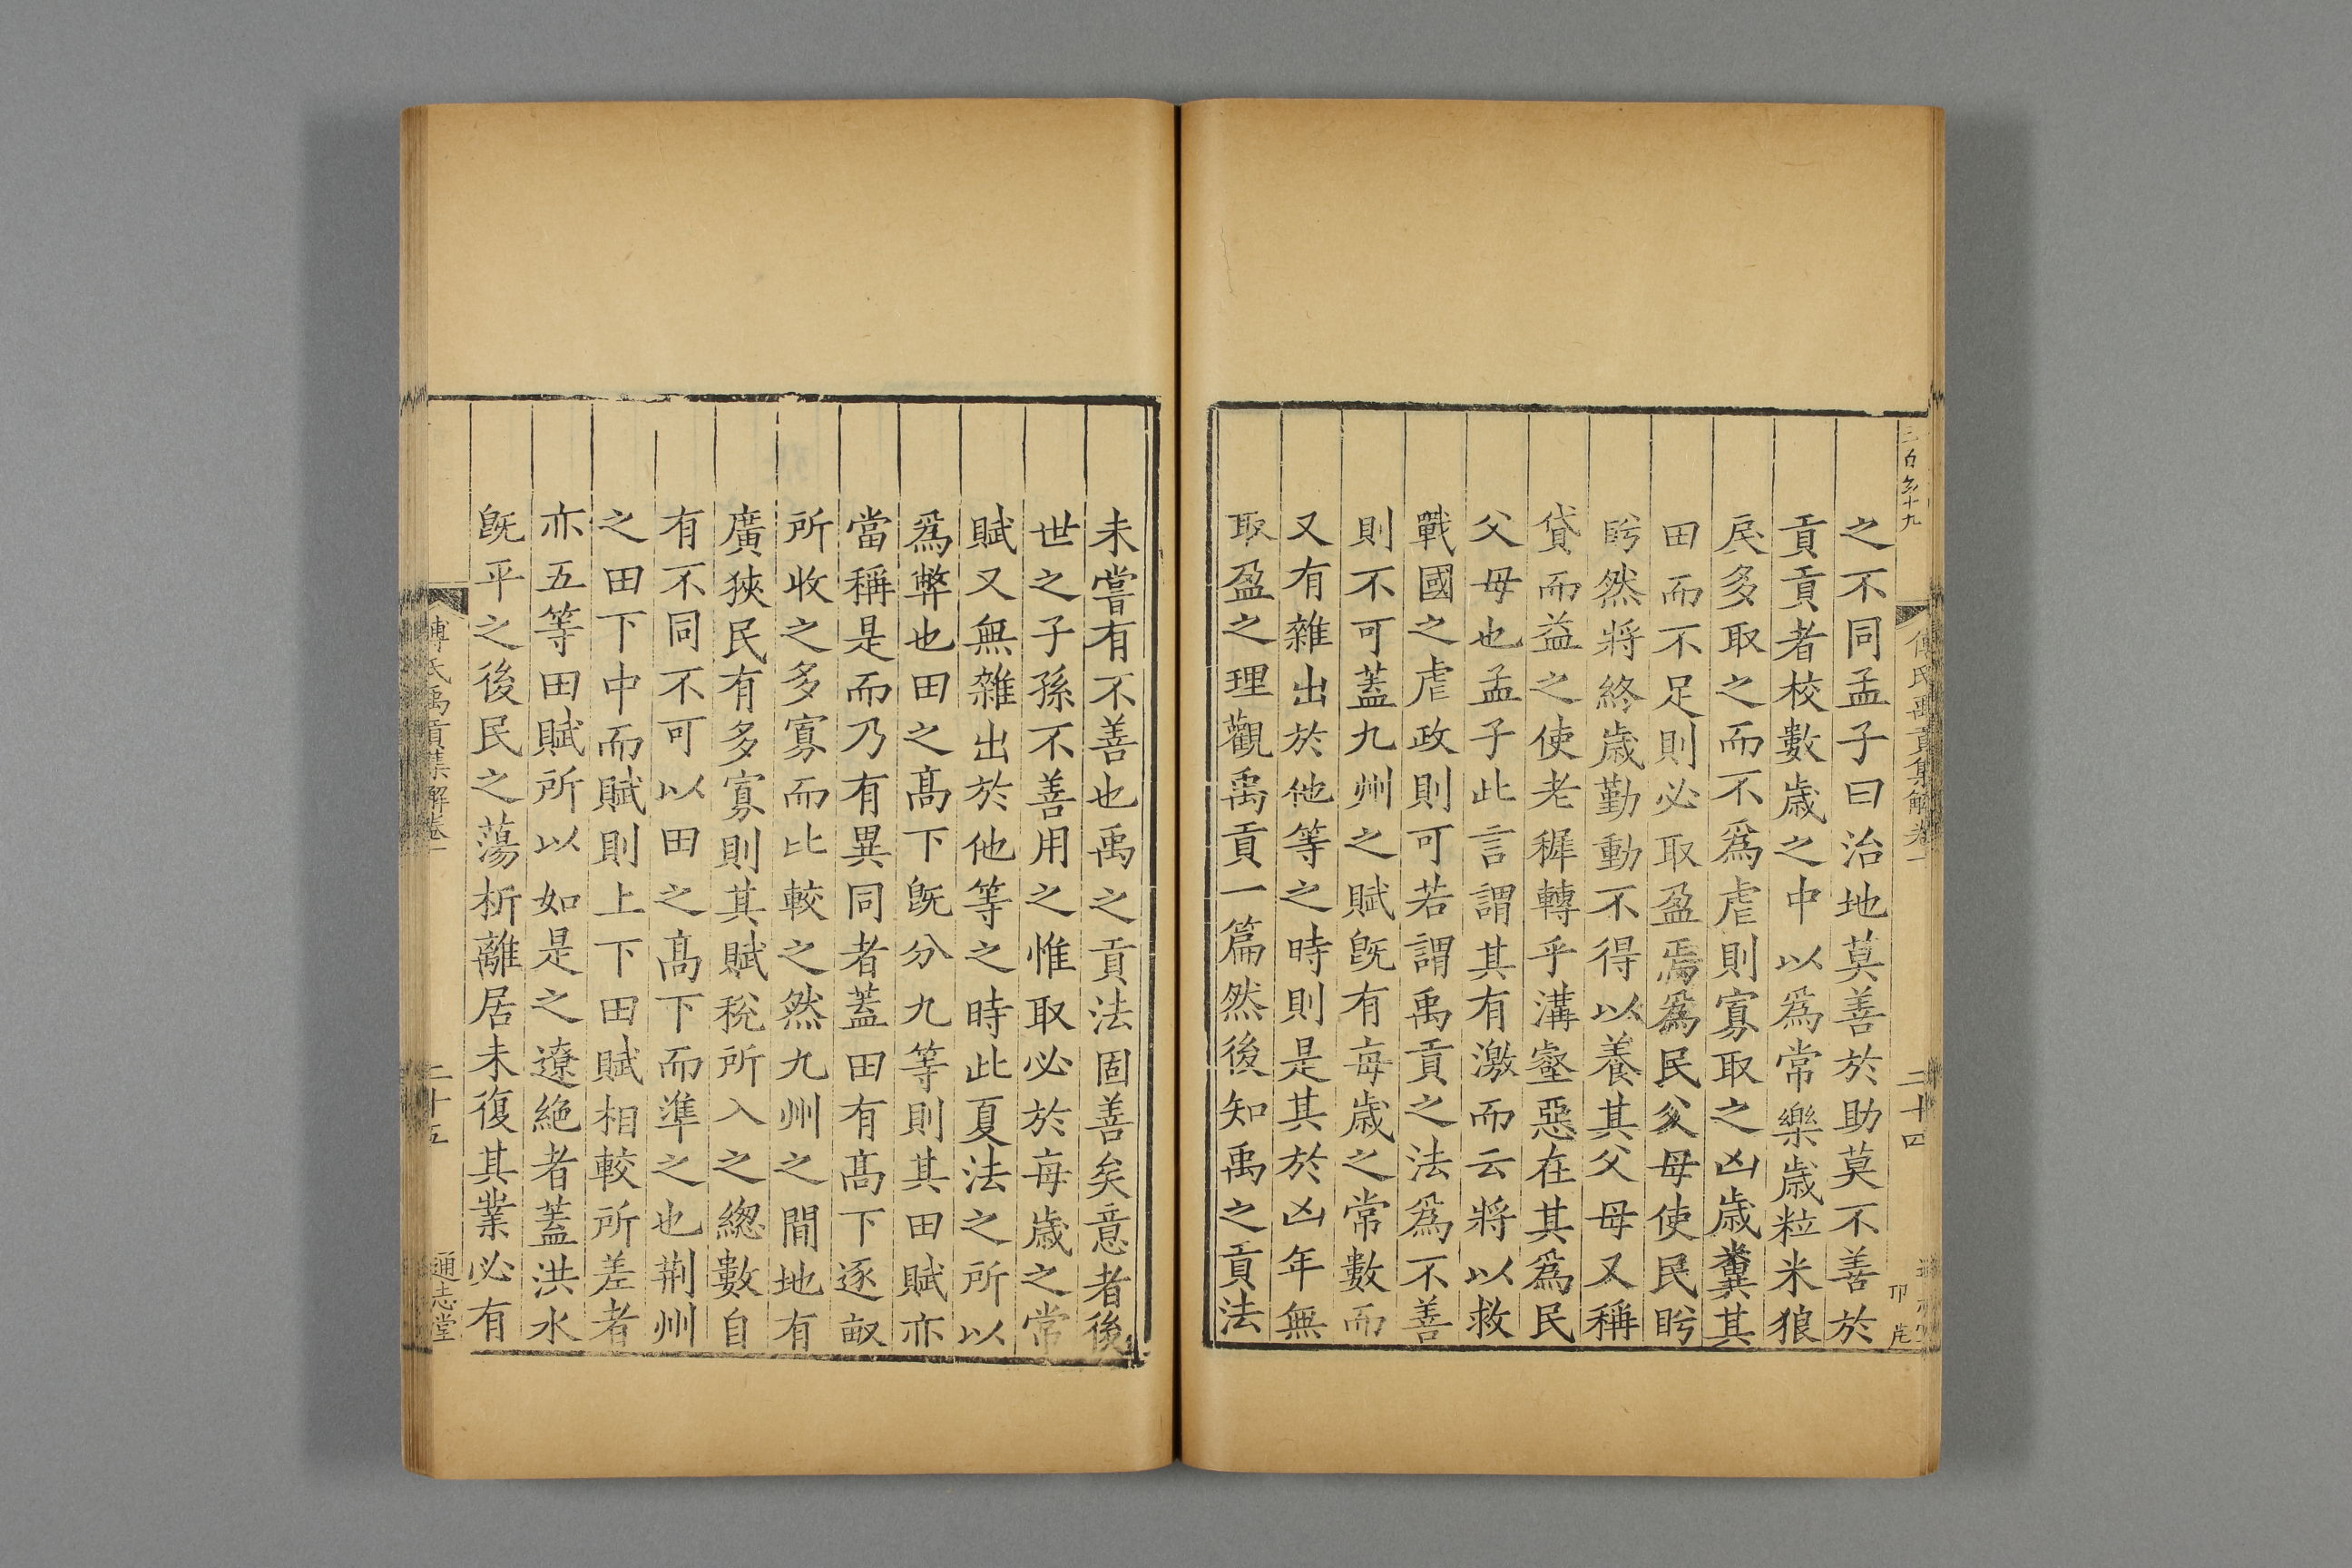 之不同孟子曰治地莫善於助莫不善於
貢貢者校數歲之中以爲常樂歲粒米狼
戾多取之而不爲虐則寡取之凶歲糞其
田而不足則必取盈焉爲民父母使民盻
盻然將終歲勤動不得以養其父母又稱
貸而益之使老稺轉乎溝壑惡在其爲民
父母也孟子此言謂其有激而云將以救
戰國之虐政則可若謂禹貢之法爲不善
則不可蓋九州之賦旣有每歲之常數而
又有雜出於他等之時則是其於凶年無
取盈之理觀禹貢一篇然後知禹之貢法
二十四
傅氏禹貢集解卷一
未嘗有不善也禹之貢法固善矣意者後
世之子孫不善用之惟取必於每歲之常
賦又無雜出於他等之時此夏法之所以
爲弊也田之髙下旣分九等則其田賦亦
當稱是而乃有異同者蓋田有髙下逐畝
所收之多寡而比較之然九州之間地有
廣狹民有多寡則其賦稅所入之緫數自
有不同不可以田之髙下而準之也荆州
之田下中而賦則上下田賦相較所差者
亦五等田賦所以如是之遼絶者蓋洪水
旣平之後民之蕩析離居未復其業必有
傅氏禹貢集解卷一
二十五
通志堂